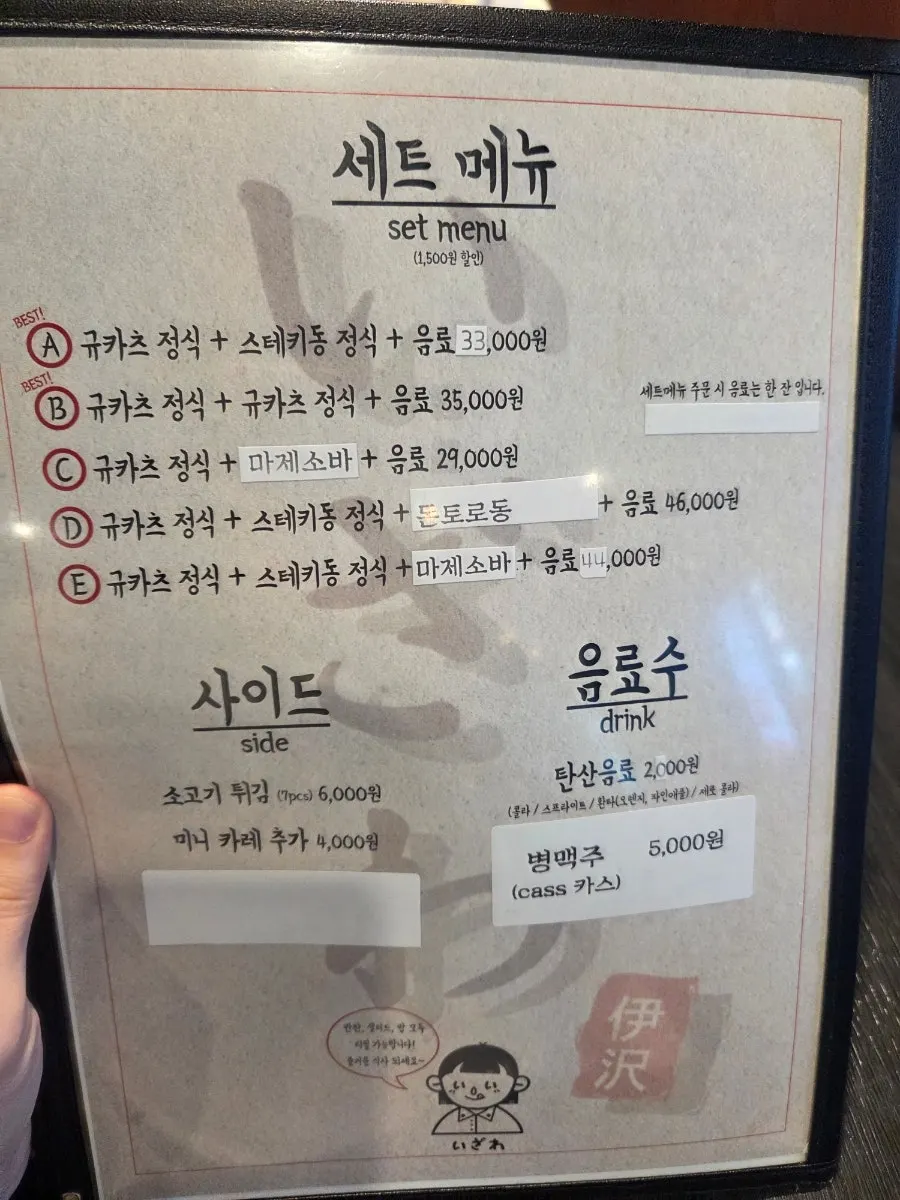 세트 메뉴
set menu
(1,500원 할인)
BEST!
A 규카츠 정식 + 스테키동 정식 + 음료 33,000원
BEST!
B 규카츠 정식 + 규카츠 정식 + 음료 35,000원
세트메뉴 주문 시 음료는 한 잔 입니다.
C 규카츠 정식 + 마제소바 + 음료 29,000원
D 규카츠 정식 + 스테키동 정식 + 돈토로동 + 음료 46,000원
E 규카츠 정식 + 스테키동 정식 + 마제소바 + 음료 44,000원
사이드
side
소고기 튀김 (7pcs) 6,000원
미니 카레 추가 4,000원
음료수
drink
탄산음료 2,000원
(콜라 / 스프라이트 / 환타(오렌지, 파인애플) / 제로 콜라)
병맥주 5,000원
(cass 카스)
반찬, 샐러드, 밥 모두
리필 가능합니다!
즐거운 식사 되세요~
いざわ
伊
沢
いざわ